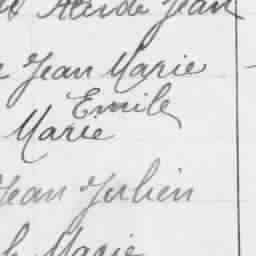 Jean
Jean Marie
Emile
Marie
Jean Julien
Marie